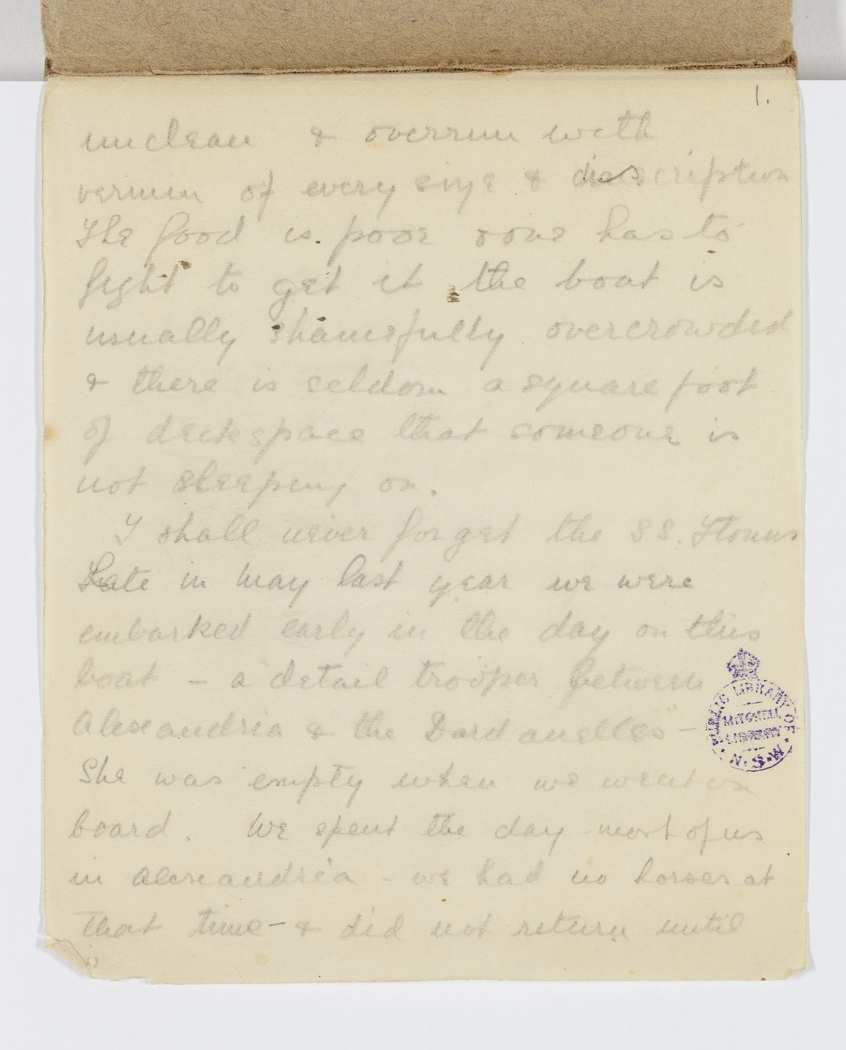 1.
unclean & overrun with
vermin of every size & discription
The food is poor & one has to
fight to get it the boat is
usually shamefully overcrowded
& there is seldom a square foot
of deckspace that someone is
not sleeping on.
I shall never forget the SS.
Late in May last year we were
embarked early in the day on this
boat – a detail trooper between
Alexandria & the Dardanelles –
She was empty when we went on
board. We spent the day most of us
in Alexandria – we had no horses at
that time – & did not return until
PUBLIC LIBRARY OF N.S.W.
MITCHELL
LIBRARY